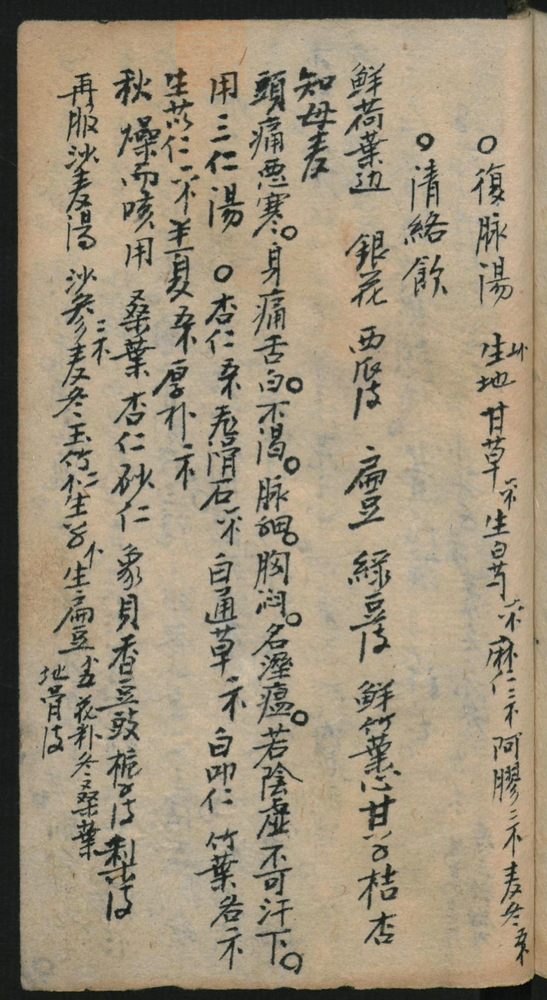 ○復脉湯 生地 甘草 生白芍 麻仁 阿膠 麦冬
○清絡飲
鮮荷葉边 銀花 西瓜皮 扁豆 綠豆皮 鮮竹葉心 甘草 桔 杏
知母 麦
頭痛惡寒。身痛舌白。不渴。脉細。胸闷。名溼瘟。若陰虛不可汗下。
用三仁湯 ○杏仁 滑石 白通草 白叩仁 竹葉各
生苡仁 半夏 厚朴
秋燥而咳用 桑葉 杏仁 砂仁 象貝 香豆豉 梔子皮 梨皮
再服沙麦湯 沙參 麦冬 玉竹 生甘草 生扁豆 花粉 冬桑葉
地骨皮